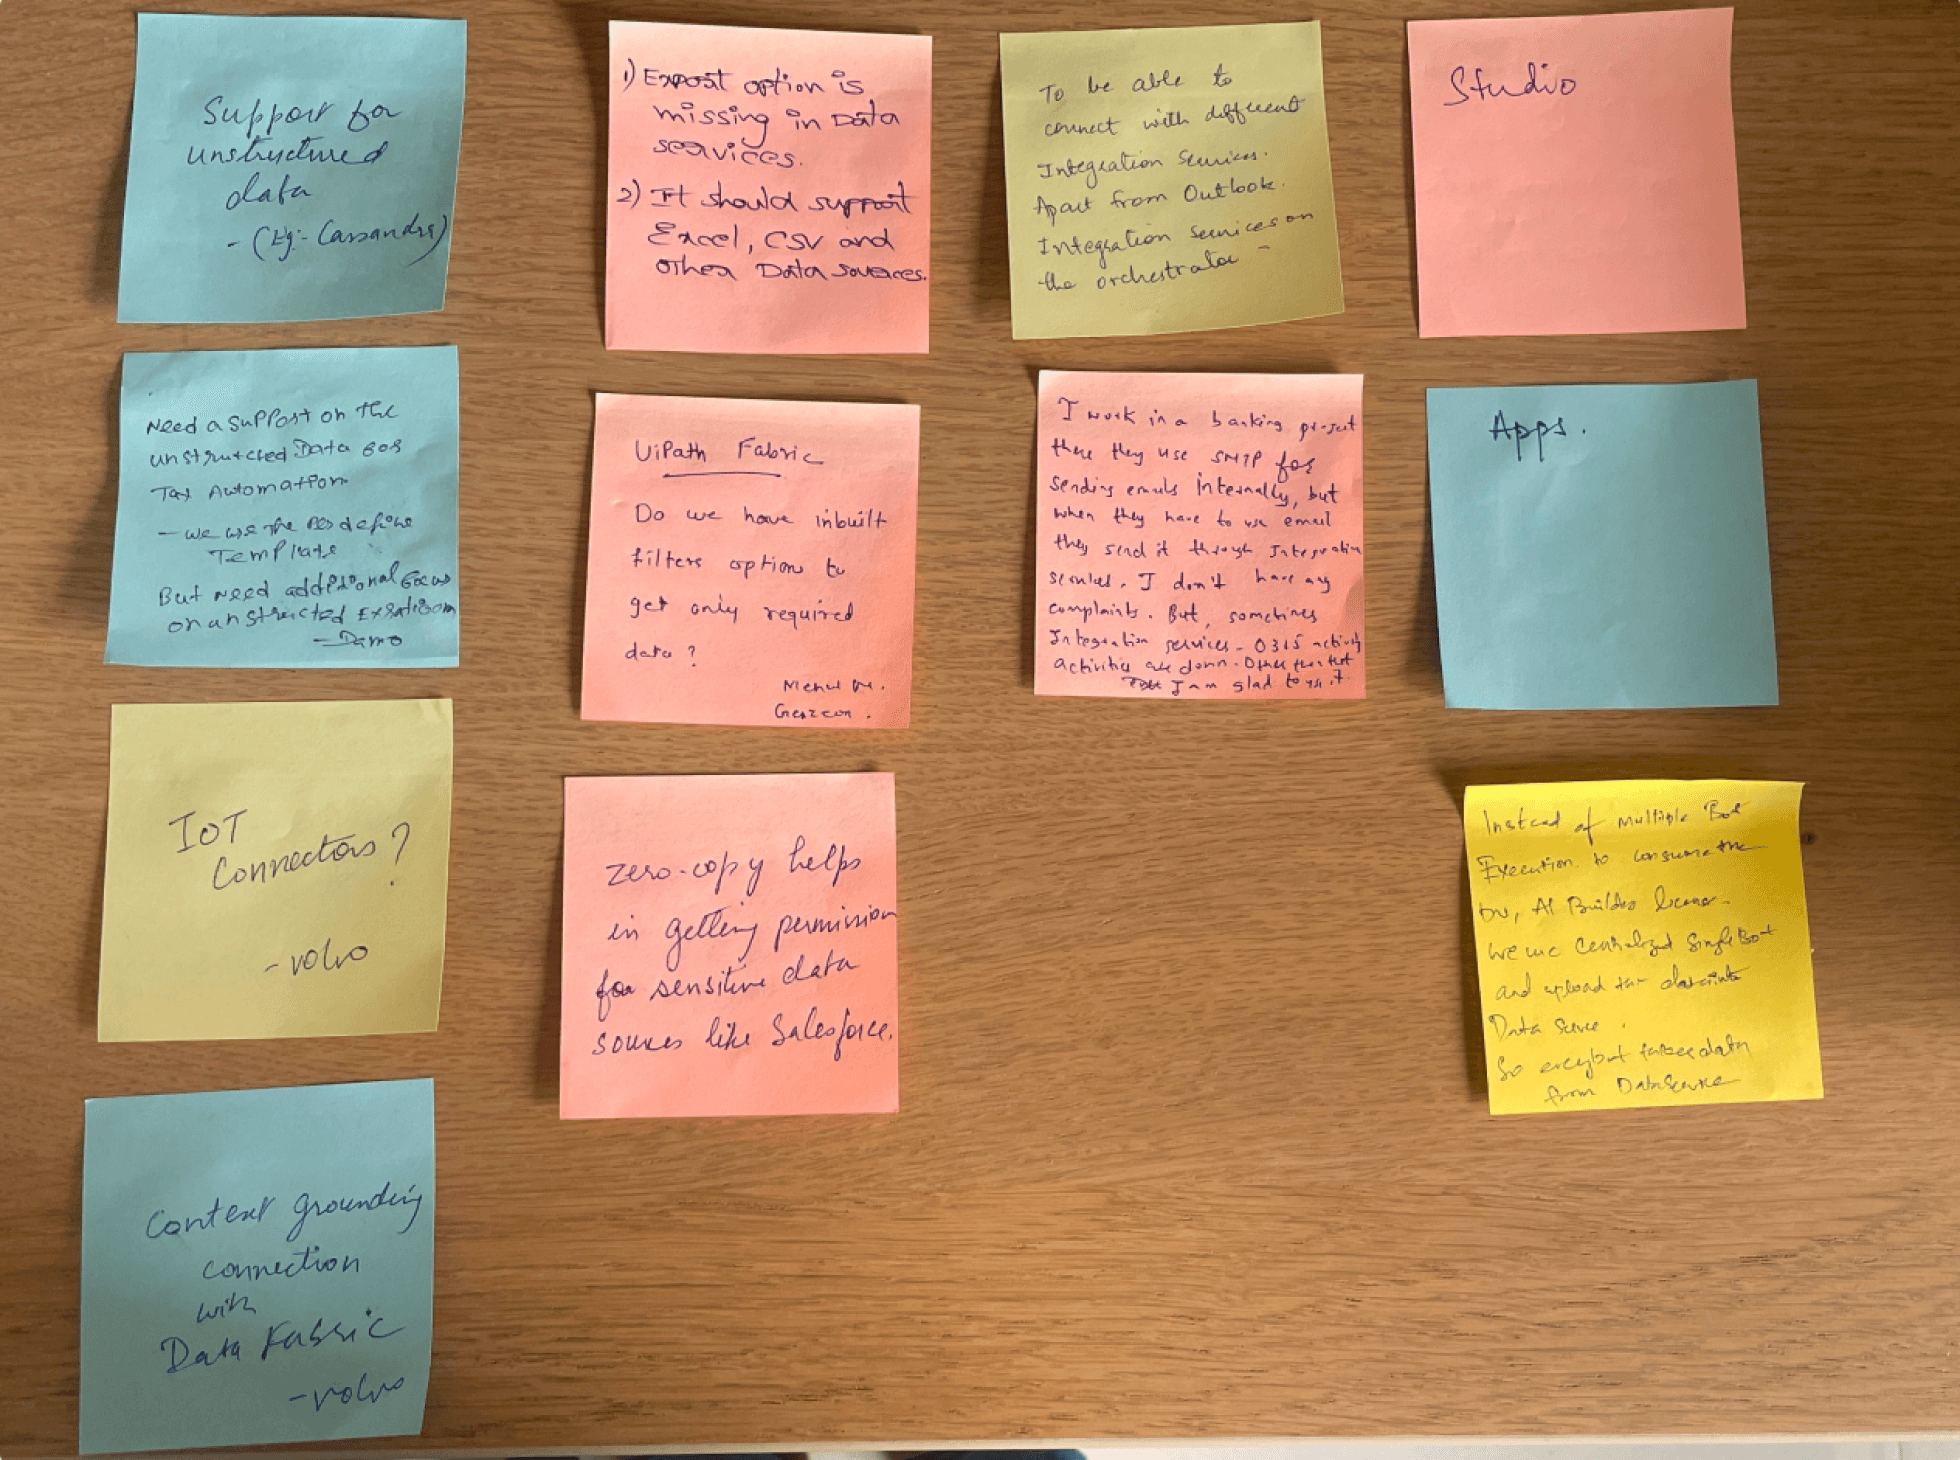 Support for
unstructured
data
- (Eg:- Cassandra)
Need a support on the
unstructed Data for
Tax Automation
- we use the predefine
Template
But need additional focus
on unstructed
- Damo
IOT
Connectors?
- volvo
Context grounding
connection
with
Data Fabric
- volvo
1) Export option is
missing in Data
services.
2) It should support
Excel, CSV and
other Data sources.
UiPath Fabric
Do we have inbuilt
filters option to
get only required
data?
Genzeon.
zero-copy helps
in getting permission
for sensitive data
sources like Salesforce.
To be able to
connect with different
Integration Services.
Apart from Outlook.
Integration Services on
the orchestrator
I work in a banking project
there they use SMTP for
sending emails internally, but
when they have to use email
they send it through Integration
services. I don't have any
complaints. But, sometimes
Integration services - O365 activity
activities are down. Other than that
I am glad to use it.
Studio
Apps.
Instead of Multiple Bot
Execution to consume the
DU, AI Builder license.
we use Centralized Single Bot
and upload the data into
Data Service.
So every bot data
from DataService